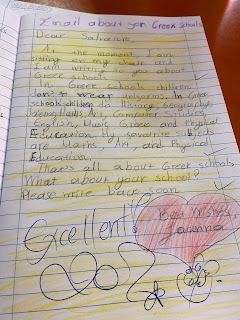 Email about your Greek Schools
Dear Salvatore,
At the moment I am
sitting on my chair and
I am writing to you about
Greek schools.
In Greek schools children
don't wear uniforms. In Greek
schools children do History, Geography,
Maths, Art, Computer Studies,
English, Music, Glass and Physical
Education. My favourite subjects
are Maths, Art, and Physical
Education.
That's all about Greek schools.
What about your school?
Please write back soon
Best Wishes,
Ioanna
Excellent!